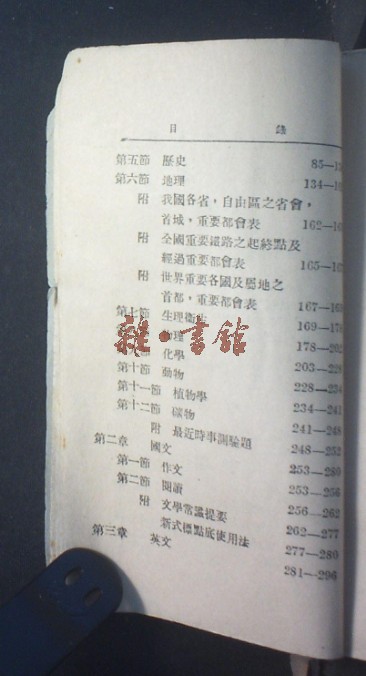 目 錄
第五節 歷史 85—
第六節 地理 134—
附 我國各省，自由區之省會，
首城，重要都會表 162—
附 全國重要鐵路之起終點及
經過重要都會表 165—
附 世界重要各國及屬地之
首都，重要都會表 167—
第七節 生理衛生 169—178
物理 178—202
節 化學 203—228
第十節 動物 228—234
第十一節 植物學 234—241
第十二節 礦物 241—248
附 最近時事測驗題 248—252
第二章 國文 253—280
第一節 作文 253—256
第二節 閱讀 256—262
附 文學常識提要 262—277
新式標點底使用法 277—280
第三章 英文 281—296
雜·書館